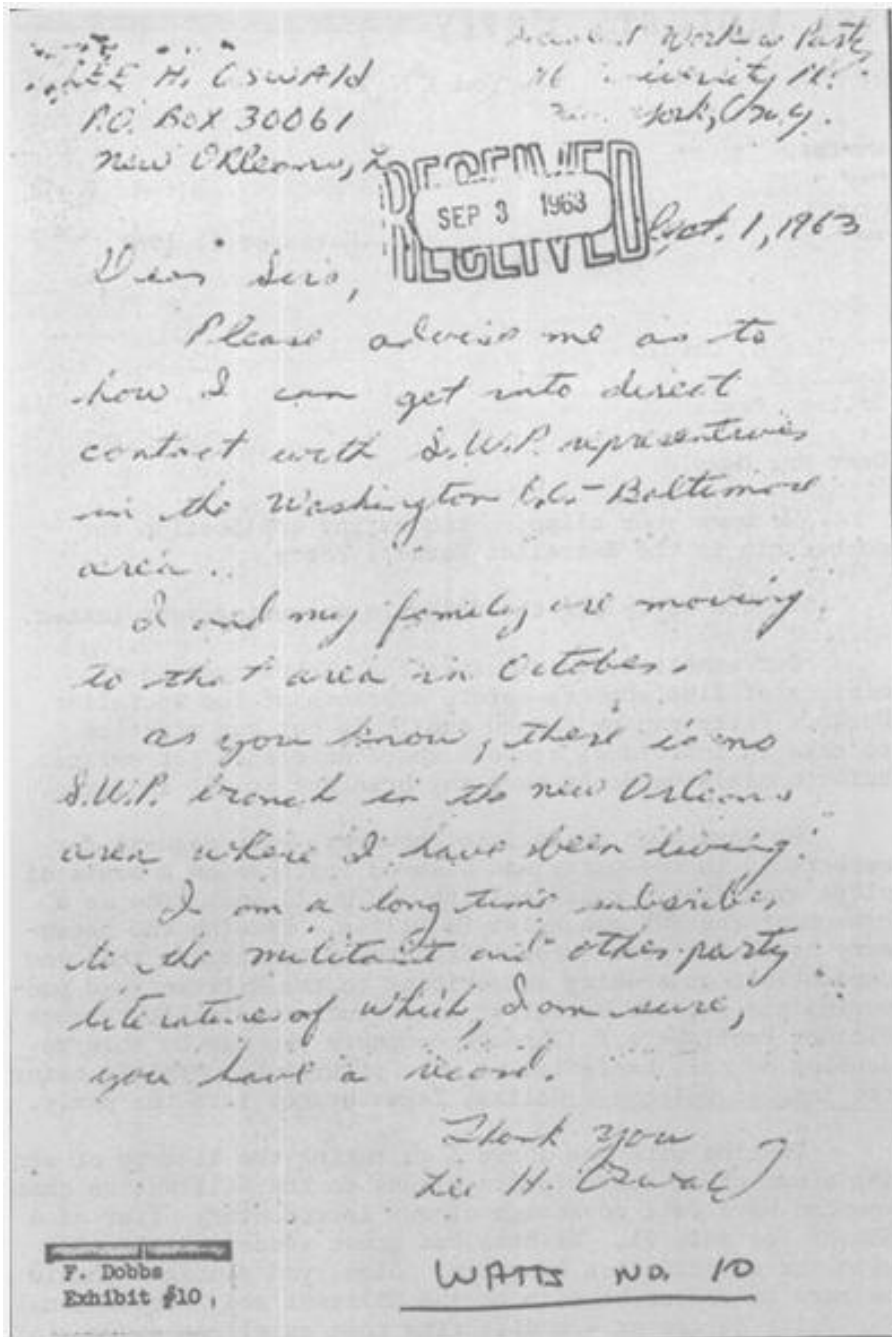 LEE H. OSWALD
P.O. Box 30061
New Orleans,
Workers Party
University Pl.
York, N.Y.
RECEIVED
SEP 3 1963
Sept. 1, 1963
Dear Sirs,
Please advise me as to
how I can get into direct
contact with S.W.P. representives
in the Washington D.C.-Baltimore
area.
I and my family are moving
to that area in October.
As you know, there is no
S.W.P. branch in the New Orleans
area where I have been living.
I am a long time subscriber
to the militant and other party
literature of which, I am sure,
you have a record.
Thank you
Lee H. Oswald
F. Dobbs
Exhibit #10,
WATTS NO. 10